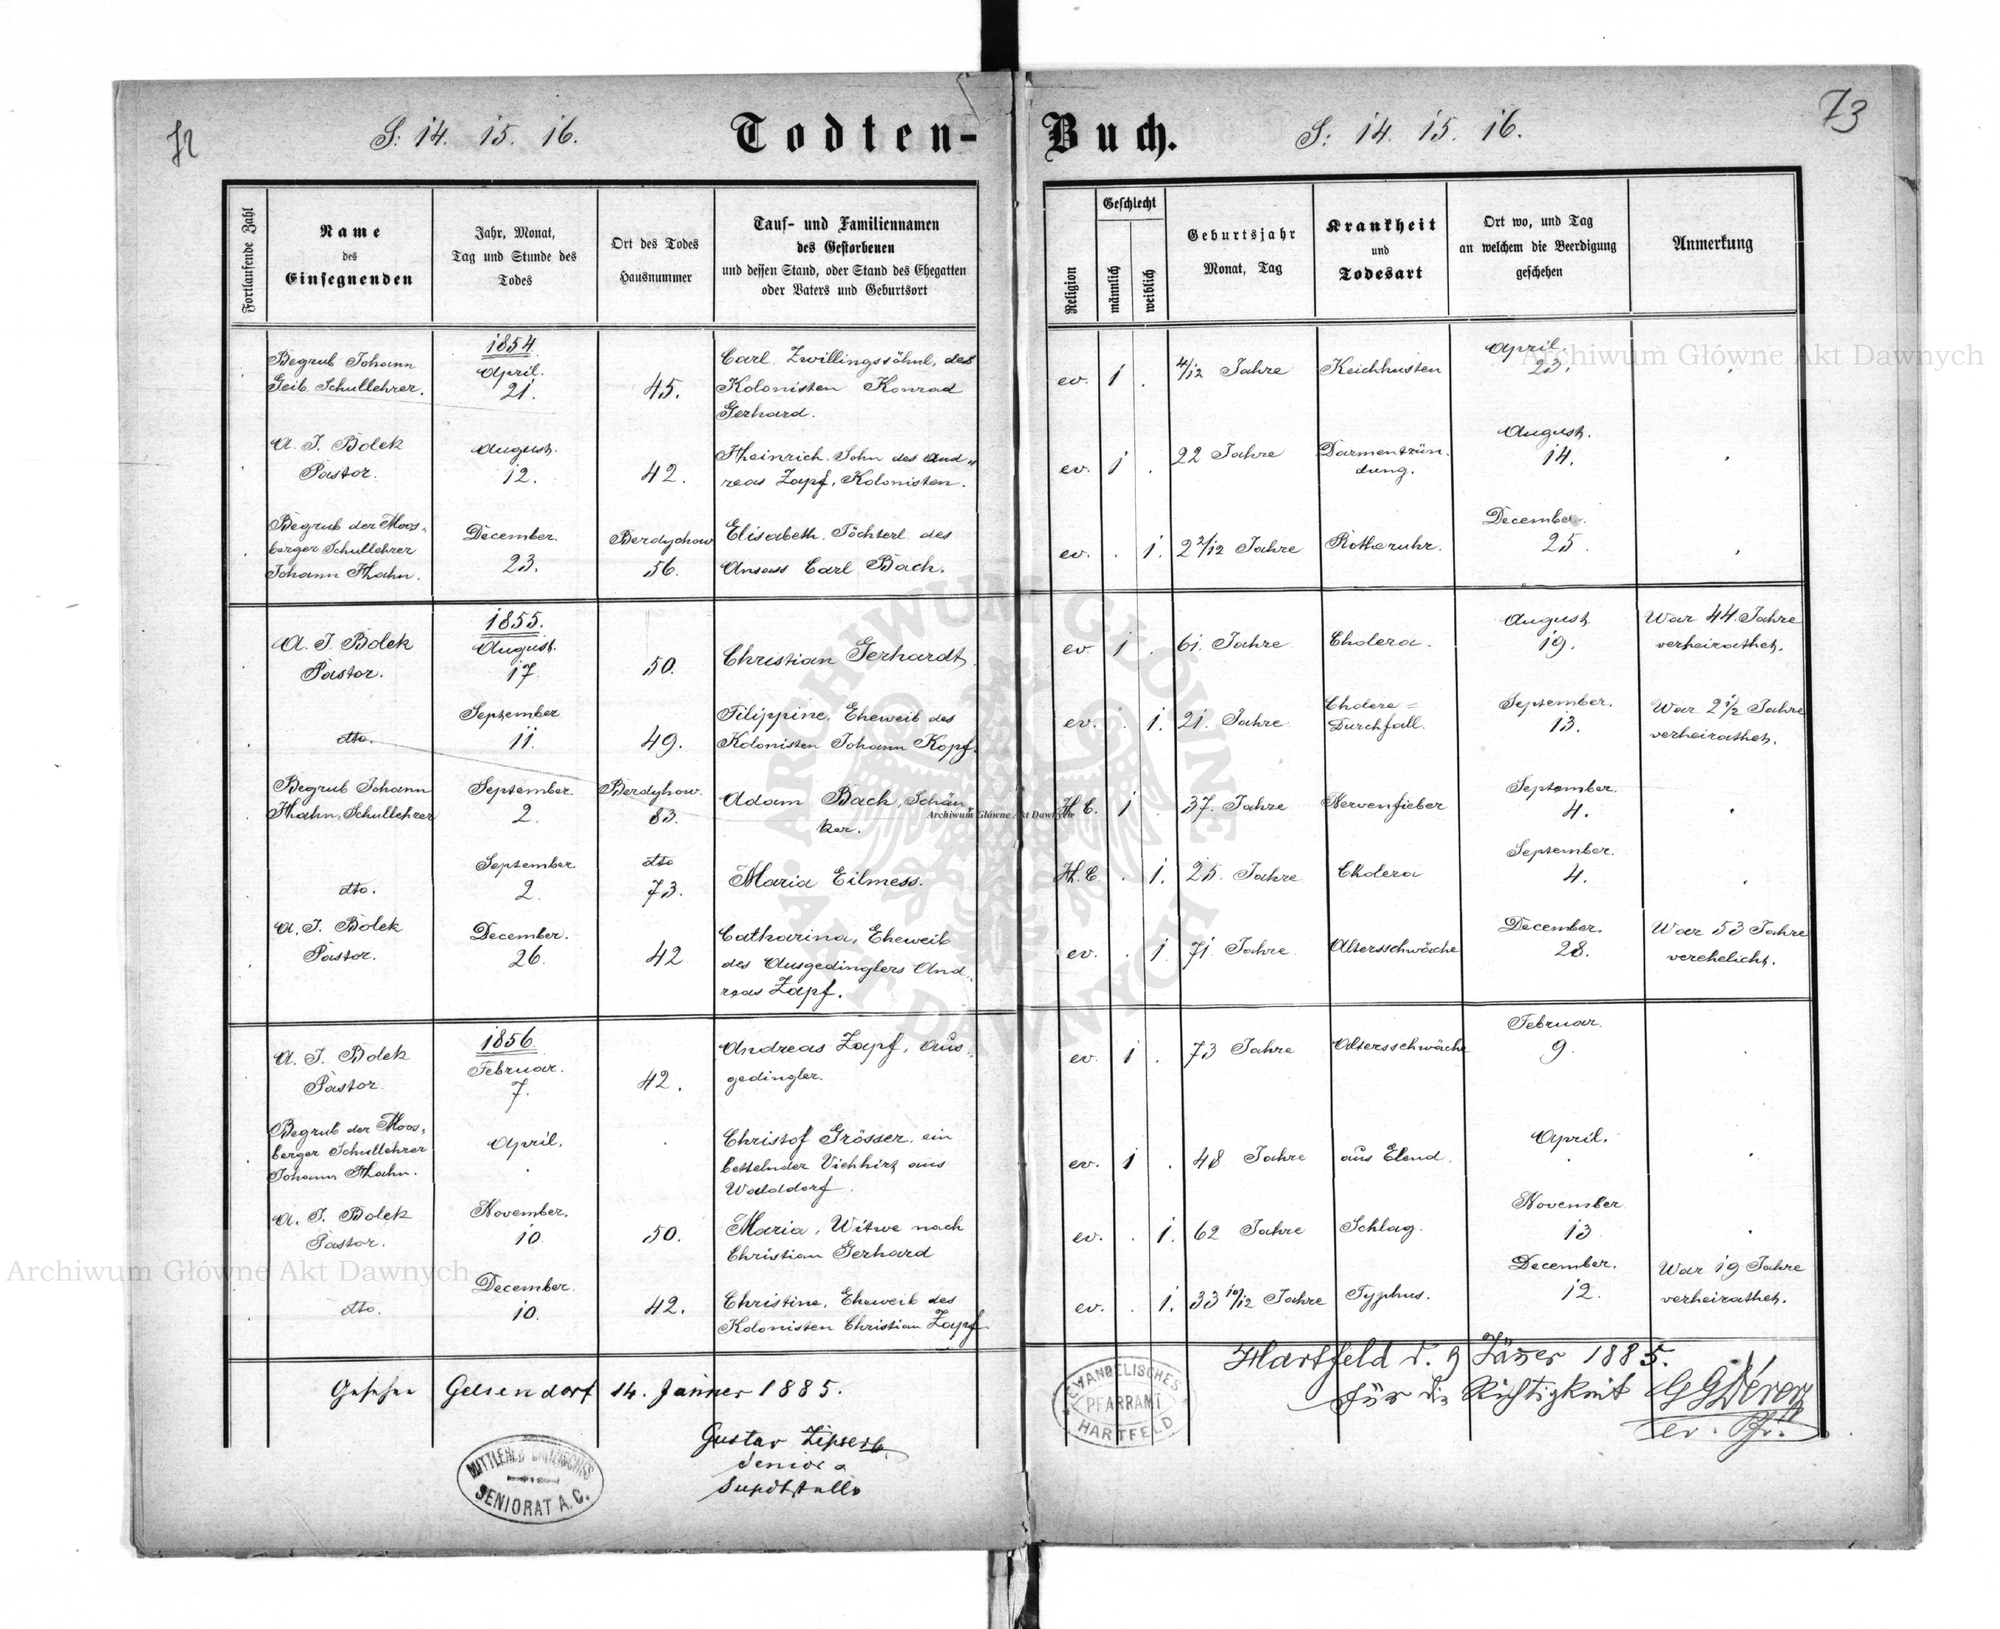 S: 14. 15. 16.
Todten-
Buch.
S: 14. 15. 16.
73
Fortlaufende Zahl
Name
des
Einsegnenden
Jahr, Monat,
Tag und Stunde des
Todes
Ort des Todes
Hausnummer
Tauf- und Familiennamen
des Gestorbenen
und dessen Stand, oder Stand des Ehegatten
oder Vaters und Geburtsort
Religion
Geschlecht
männlich
weiblich
Geburtsjahr
Monat, Tag
Krankheit
und
Todesart
Ort wo, und Tag
an welchem die Beerdigung
geschehen
Anmerkung
Begrub Johann
Geib. Schullehrer.
1854.
April.
21.
45.
Carl Zwillingssöhnl. des
Kolonisten Konrad
Gerhard.
ev. 1 .
4/12 Jahre
Keichhusten
April.
23.
A. J. Bolek
Pastor.
August.
12.
42.
Hheinrich. Sohn des And-
reas Zapf, Kolonisten.
ev. 1 .
22 Jahre
Darmentzün-
dung.
August.
14.
Begrub der Moos-
berger Schullehrer
Johann Hhahn.
December.
23.
Berdychow
56.
Elisabeth. Töchterl. des
Ansass Carl Bach.
ev. . 1.
2 2/12 Jahre
Rotheruhr.
December.
25.
A. J. Bolek
Pastor.
1855.
August.
17.
50.
Christian Gerhardt.
ev. 1 .
61. Jahre
Cholera.
August
19.
War 44. Jahre
verheirathet.
dto.
September
11.
49.
Filippine. Eheweib des
Kolonisten Johann Kopf.
ev. . 1.
21. Jahre
Cholera=
Durchfall.
September.
13.
War 2 1/2 Jahre
verheirathet.
Begrub Johann
Hhahn. Schullehrer
September.
2.
Berdyhow.
83.
Adam Bach, Schän-
ker.
H. C. 1 .
37. Jahre
Nervenfieber
September.
4.
dto.
September
2.
dto
73.
Maria Eilmess.
H. C. . 1.
25. Jahre
Cholera
September.
4.
A. J. Bolek
Pastor.
December.
26.
42
Catharina, Eheweib
des Ausgedinglers And-
reas Zapf.
ev. . 1
71. Jahre
Altersschwäche
December.
28.
War 53 Jahre
verehelicht.
A. J. Bolek
Pastor.
1856.
Februar.
7.
42.
Andreas Zapf, Aus-
gedingler.
ev. 1 .
73 Jahre
Altersschwäche
Februar.
9.
Begrub der Moos-
berger Schullehrer
Johann Hhahn.
April.
Christof Grösser. ein
bettelnder Viehhirt aus
Walddorf.
ev. 1 .
48 Jahre
aus Elend.
April.
A. J. Bolek
Pastor.
November.
10
50.
Maria, Witwe nach
Christian Gerhard
ev. . 1.
62 Jahre
Schlag.
November
13
dto.
December.
10.
42.
Christine. Eheweib des
Kolonisten Christian Zapf.
ev. . 1.
33 10/12 Jahre
Typhus.
December.
12.
War 19 Jahre
verheirathet.
Gesehen Gelsendorf 14. Jänner 1885.
Gustav Zipser
Senior
MITTLERES GALIZISCHES
SENIORAT A. C.
EVANGELISCHES
PFARRAMT
HARTFELD
Hartfeld d. 9 Jänner 1885.
für die Richtigkeit
ev. Pfr.
Archiwum Główne Akt Dawnych
Archiwum Główne Akt Dawnych
Archiwum Główne Akt Dawnych
ARCHIWUM GŁÓWNE
AKT DAWNYCH